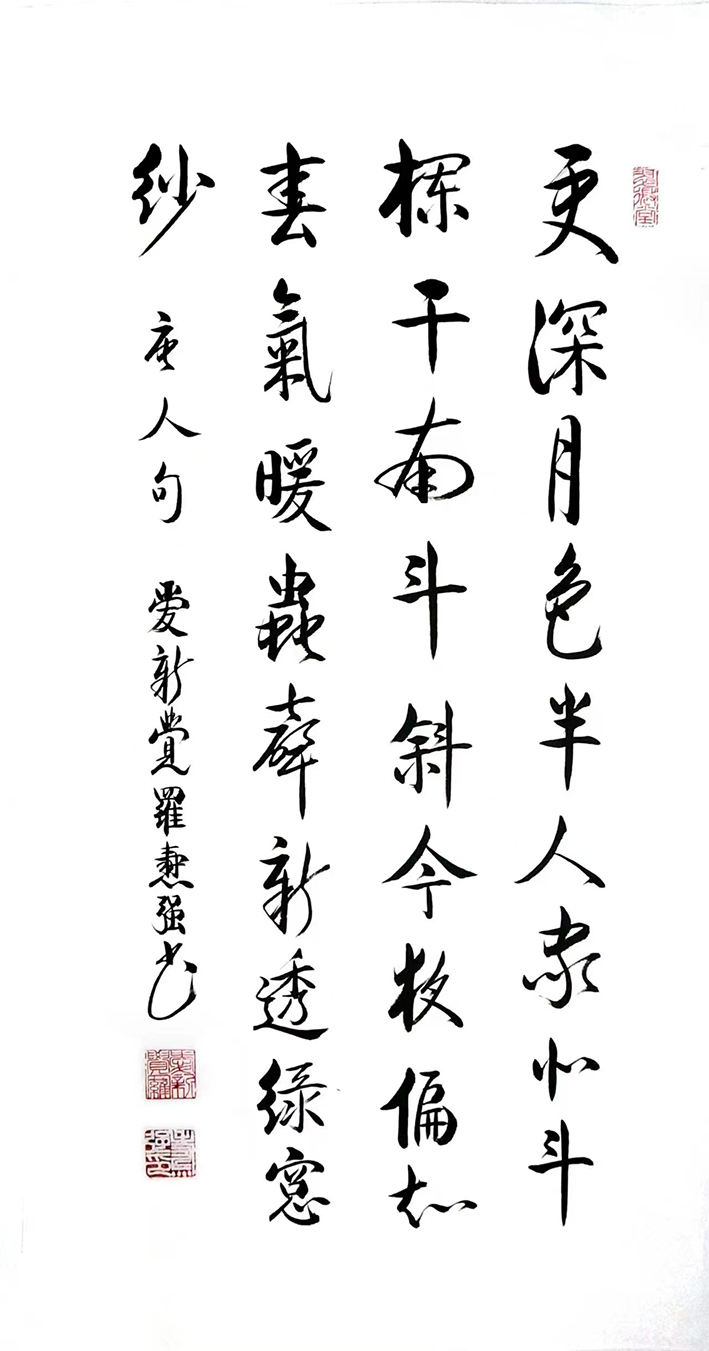 更深月色半人家北斗
欄干南斗斜今夜偏知
春氣暖蟲聲新透綠窓
紗 唐人句 愛新覺羅 强书
愛新覺羅